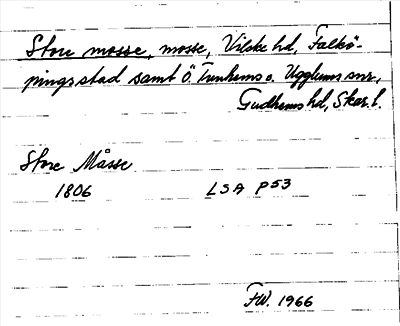 Store mosse, mosse, Vilske hd, Falkö-
pings stad samt Ö. Tunhems o. Ugglums snr,
Gudhems hd, Skar. l.
Store Måsse
1806 LSA P53
FW. 1966